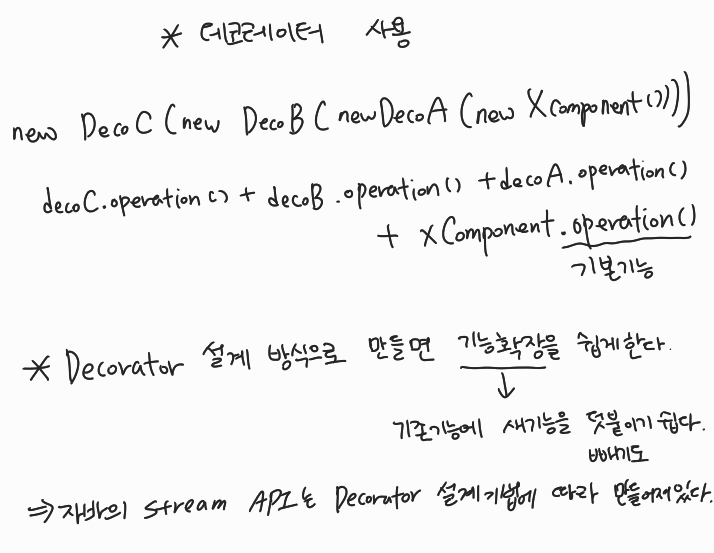 * 데코레이터 사용
new DecoC(new DecoB(newDecoA(new XComponent())))
decoC.operation() + decoB.operation() + decoA.operation()
+ xComponent.operation()
기본기능
* Decorator 설계 방식으로 만들면 기능확장을 쉽게한다.
↓
기존기능에 새기능을 덧붙이기 쉽다.
빼기도
⇒ 자바의 stream API는 Decorator 설계기법에 따라 만들어져있다.